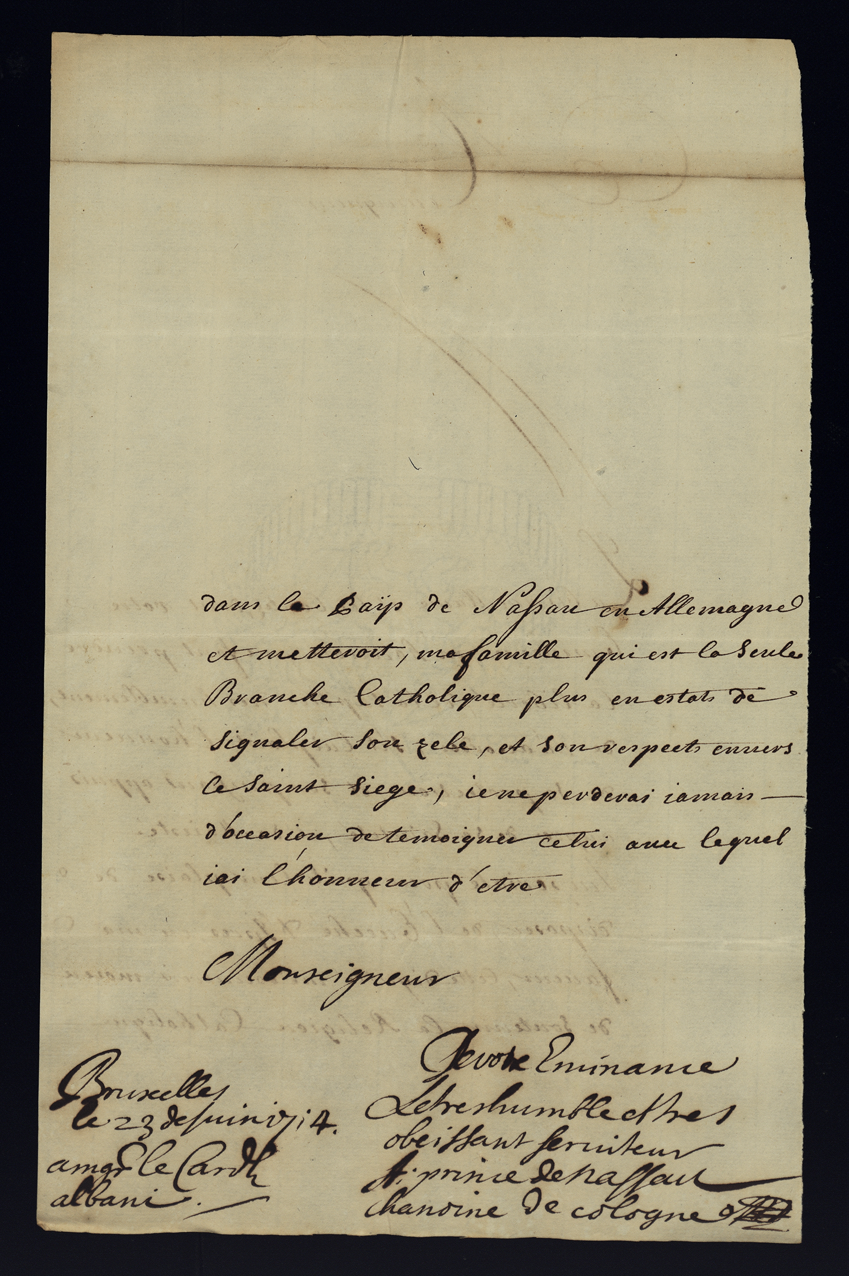 dans le Païs de Nassau en Allemagne
et metteroit, ma famille qui est la seule
Branche Catholique plus en estats de
signaler son zele, et son respects envers
le saint siege, ie ne perderai iamais —
d'occasion de temoigner celui avec lequel
iai l'honneur d'etre
Monseigneur
De votre Eminance
Le tres humble et tres
obeissant serviteur
prince de nassau
chanoine de cologne
Bruxelles
le 23 de Juin 1714.
a mgr le Cardl
albani.